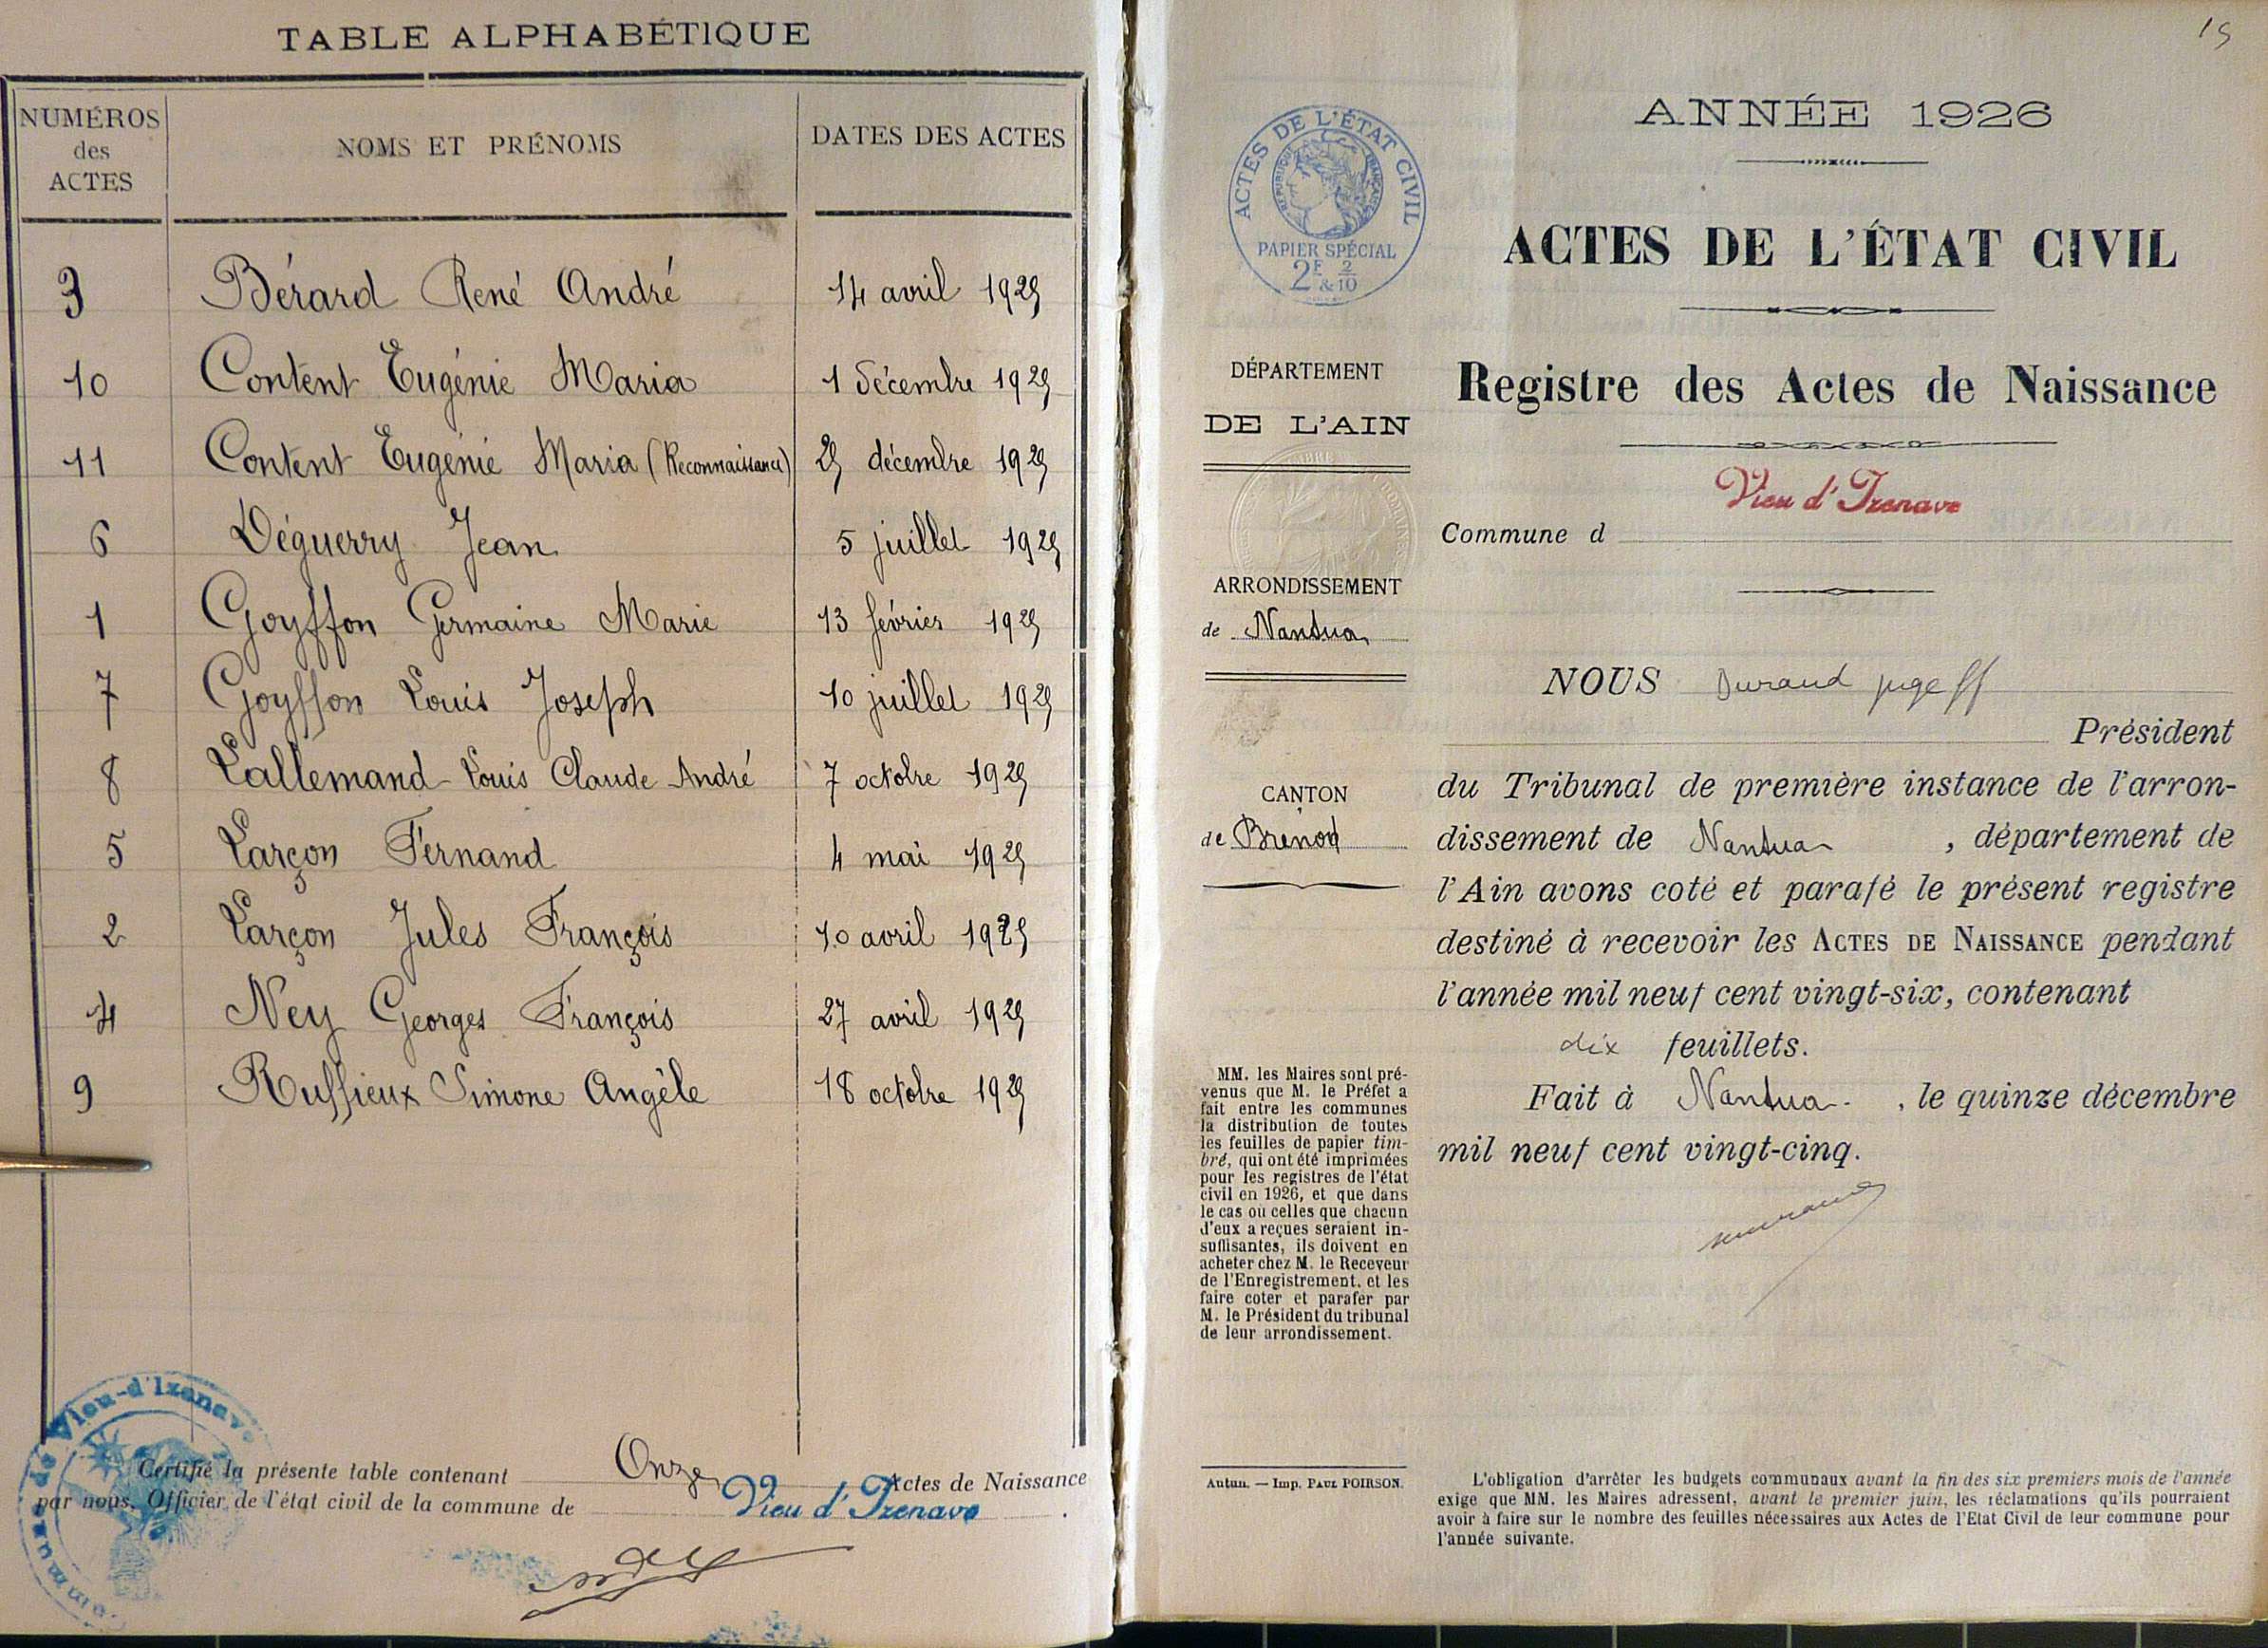 TABLE ALPHABÉTIQUE
NUMÉROS
des
ACTES
NOMS ET PRÉNOMS
DATES DES ACTES
3 Bérard René André 14 avril 1925
10 Content Eugénie Maria 1 décembre 1925
11 Content Eugénie Maria (Reconnaissance) 25 décembre 1925
6 Déguerry Jean 5 juillet 1925
1 Goyffon Germaine Marie 13 février 1925
7 Goyffon Louis Joseph 10 juillet 1925
8 Lallemand Louis Claude André 7 octobre 1925
5 Larçon Fernand 4 mai 1925
2 Larçon Jules François 10 avril 1925
4 Ney Georges François 27 avril 1925
9 Ruffieux Simone Angèle 18 octobre 1925
Certifié la présente table contenant Onze Actes de Naissance
par nous, Officier de l'état civil de la commune de Vieu d'Izenave.
Vieu-d'Izenave
15
ANNÉE 1926
ACTES DE L'ÉTAT CIVIL
RÉPUBLIQUE FRANÇAISE
PAPIER SPÉCIAL
2F 2/10
&
ACTES DE L'ÉTAT CIVIL
Registre des Actes de Naissance
DÉPARTEMENT
DE L'AIN
Vieu d'Izenave
Commune d
ARRONDISSEMENT
de Nantua
CANTON
de Brenod
NOUS Durand juge ff
Président
du Tribunal de première instance de l'arron-
dissement de Nantua, département de
l'Ain avons coté et parafé le présent registre
destiné à recevoir les ACTES DE NAISSANCE pendant
l'année mil neuf cent vingt-six, contenant
dix feuillets.
Fait à Nantua, le quinze décembre
mil neuf cent vingt-cinq.
MM. les Maires sont pré-
venus que M. le Préfet a
fait entre les communes
la distribution de toutes
les feuilles de papier tim-
bré, qui ont été imprimées
pour les registres de l'état
civil en 1926, et que dans
le cas où celles que chacun
d'eux a reçues seraient in-
suffisantes, ils doivent en
acheter chez M. le Receveur
de l'Enregistrement, et les
faire coter et parafer par
M. le Président du tribunal
de leur arrondissement.
Autun. — Imp. PAUL POIRSON.
L'obligation d'arrêter les budgets communaux avant la fin des six premiers mois de l'année
exige que MM. les Maires adressent, avant le premier juin, les réclamations qu'ils pourraient
avoir à faire sur le nombre des feuilles nécessaires aux Actes de l'Etat Civil de leur commune pour
l'année suivante.